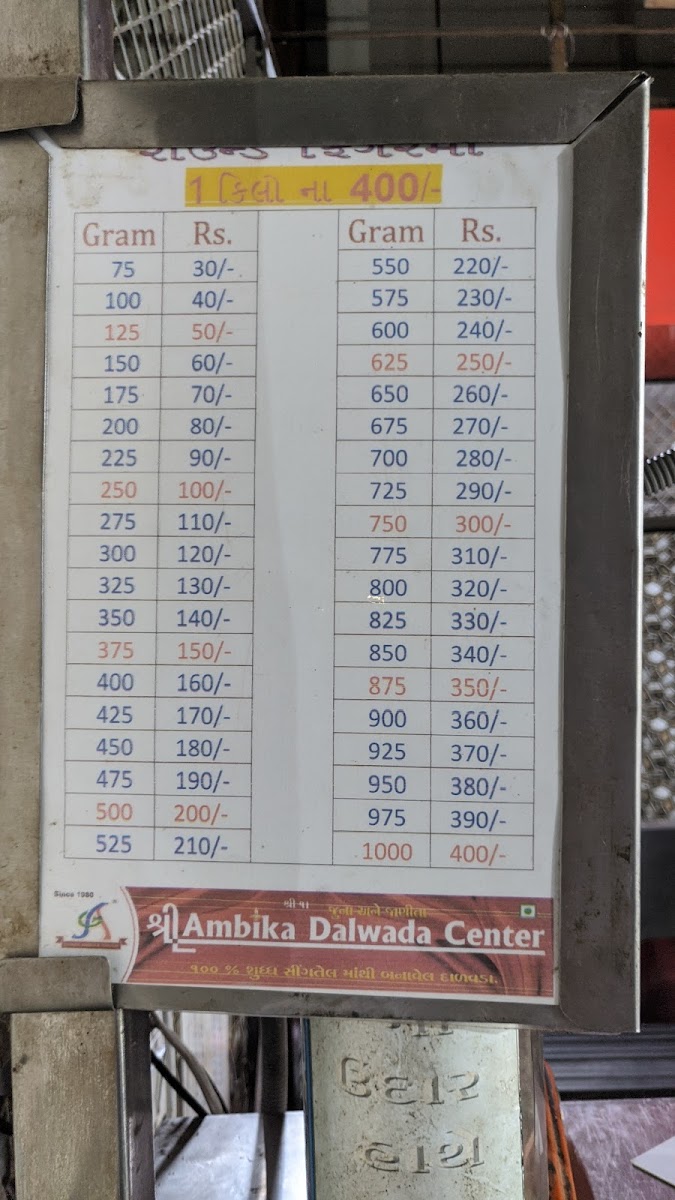 રાઉન્ડ ફિગરમાં
1 કિલો ના 400/-
Gram Rs. Gram Rs.
75 30/- 550 220/-
100 40/- 575 230/-
125 50/- 600 240/-
150 60/- 625 250/-
175 70/- 650 260/-
200 80/- 675 270/-
225 90/- 700 280/-
250 100/- 725 290/-
275 110/- 750 300/-
300 120/- 775 310/-
325 130/- 800 320/-
350 140/- 825 330/-
375 150/- 850 340/-
400 160/- 875 350/-
425 170/- 900 360/-
450 180/- 925 370/-
475 190/- 950 380/-
500 200/- 975 390/-
525 210/- 1000 400/-
Since 1980
જુના અને જાણીતા
શ્રી Ambika Dalwada Center
૧૦૦ % શુધ્ધ સીંગતેલ માંથી બનાવેલ દાળવડા.